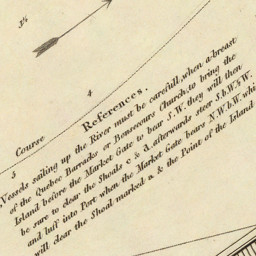 3½
4
Course
5
References.
Vessels sailing up the River must be carefull, when a-breast
of the Quebec Barracks or Bonsecours Church, to bring the
Island before the Market Gate to bear S.W. they will then
be sure to clear the Shoals c & d. afterwards steer S.b.W.½W.
and luff into Port when the Market Gate bears N.W.b.W. whi
will clear the Shoal marked a. & the Point of the Island